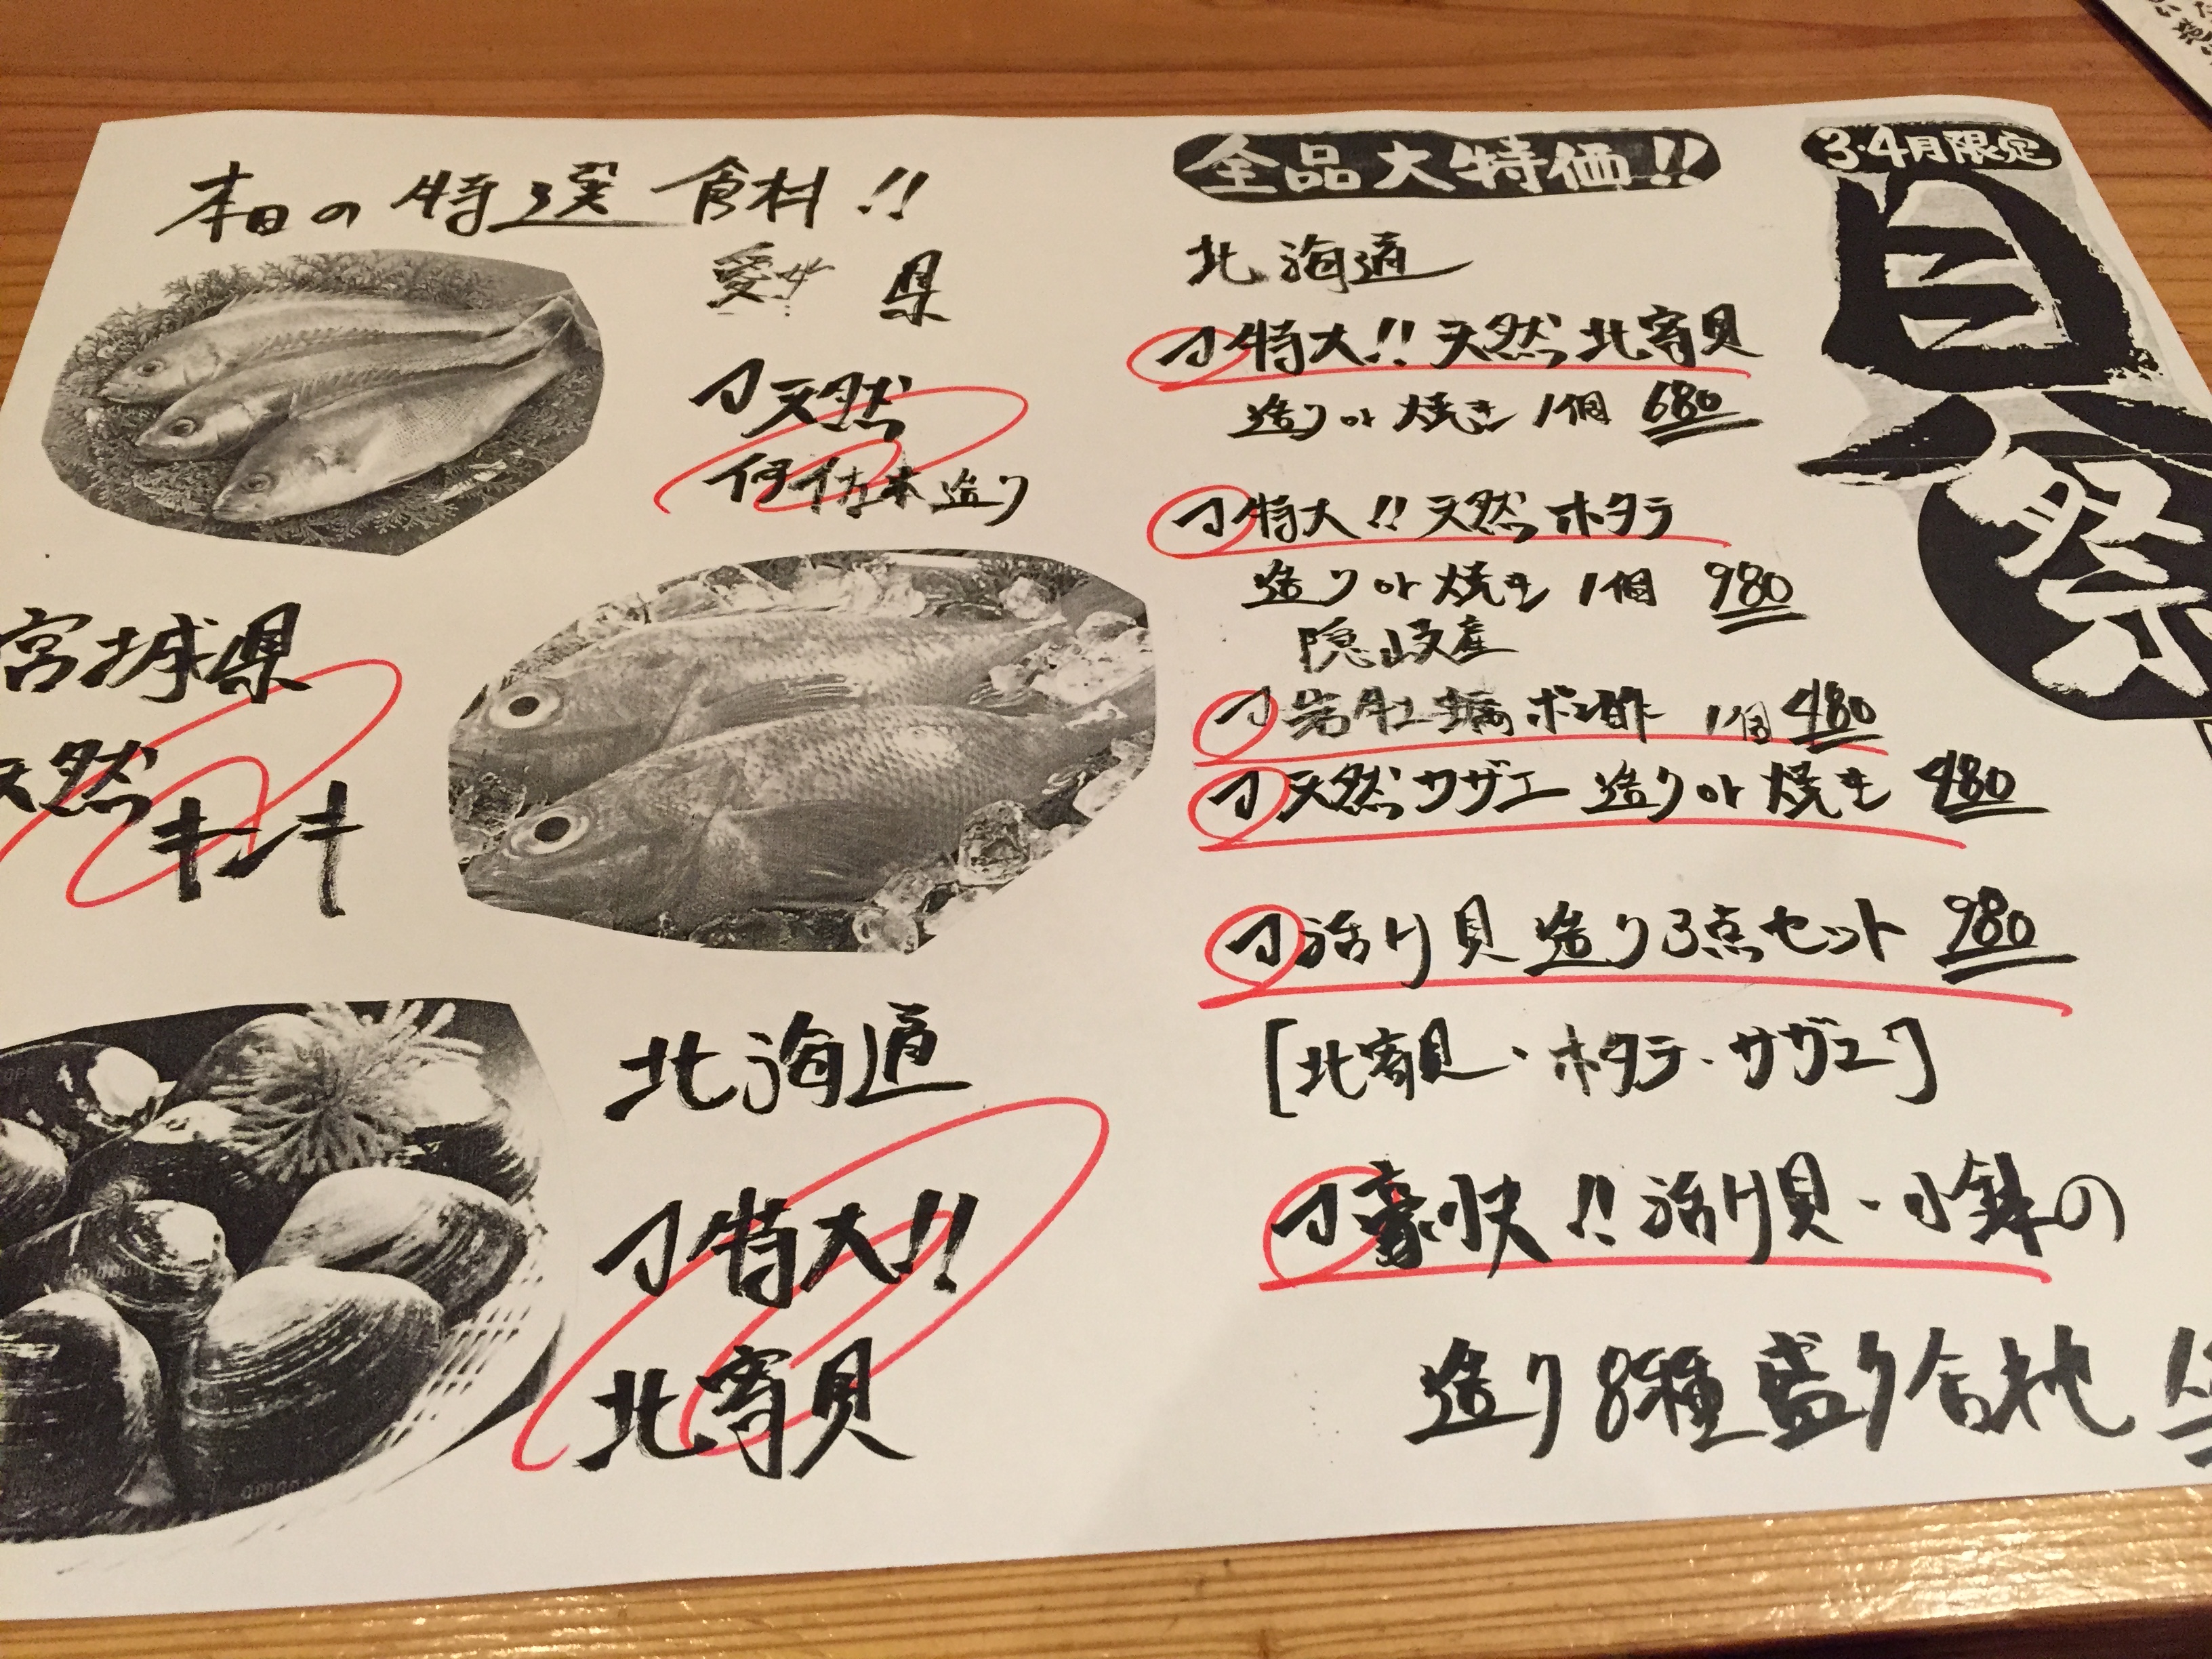 本日の特選食材!!
愛媛県
天然
伊佐木造り
宮城県
天然
キンキ
北海道
特大!!
北寄貝
3・4月限定
貝祭
全品大特価!!
北海道
特大!!天然北寄貝
造りor焼き 1個 680
特大!!天然ホタテ
造りor焼き 1個 980
隠岐産
岩牡蠣ポン酢 1個 480
天然サザエ 造りor焼き 480
活け貝造り3点セット 980
[北寄貝・ホタテ・サザエ]
豪快!!活け貝・小鉢の
造り8種盛り合わせ